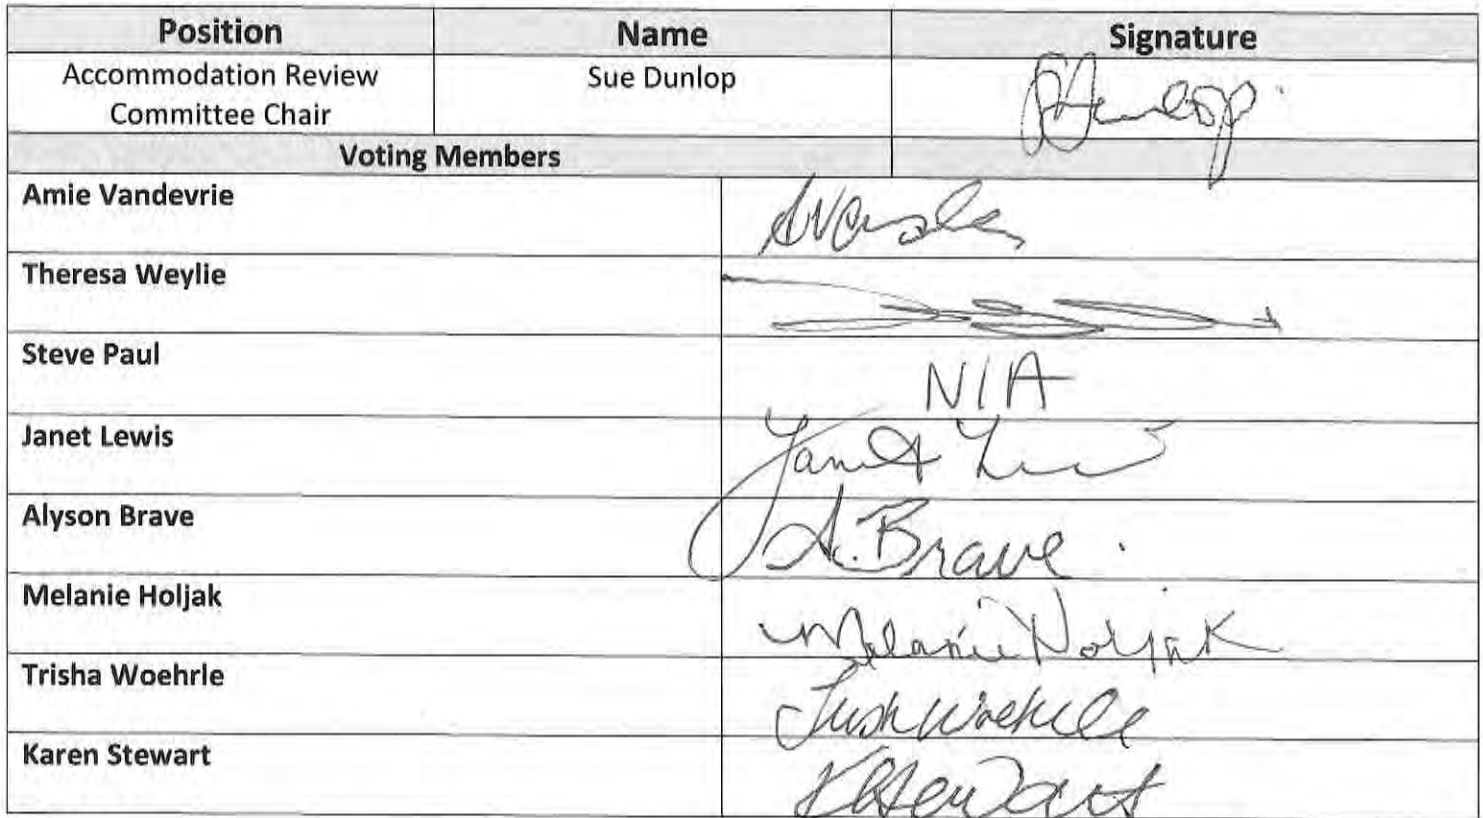 Position Name Signature
Accommodation Review Sue Dunlop
Committee Chair
SDunlop
Voting Members
Amie Vandevrie
Theresa Weylie
Steve Paul N/A
Janet Lewis Janet Lewis
Alyson Brave A. Brave
Melanie Holjak Melanie Holjak
Trisha Woehrle Trish Woehrle
Karen Stewart KStewart